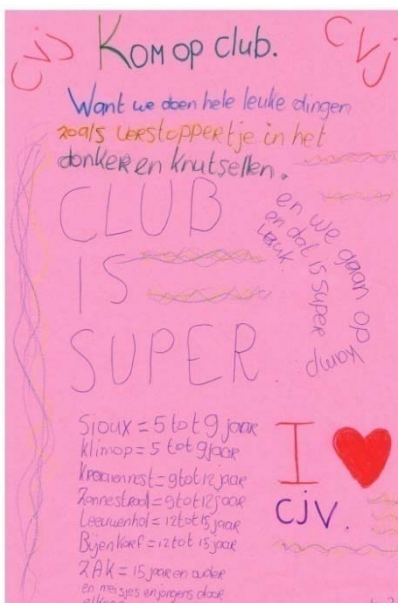 CVJ
Kom op club.
CVJ
Want we doen hele leuke dingen
zoals verstoppertje in het
donker en knutsellen.
CLUB
IS
SUPER.
en we gaan op kamp
en dat is super
leuk.
Sioux = 5 tot 9 jaar
Klimop = 5 tot 9 jaar
Kraaiennest = 9 tot 12 jaar
Zonnestraal = 9 tot 12 jaar
Leeuwenhol = 12 tot 15 jaar
Bijenkorf = 12 tot 15 jaar
ZAK = 15 jaar en ouder
en meisjes en jongens door
I ❤
CJV.